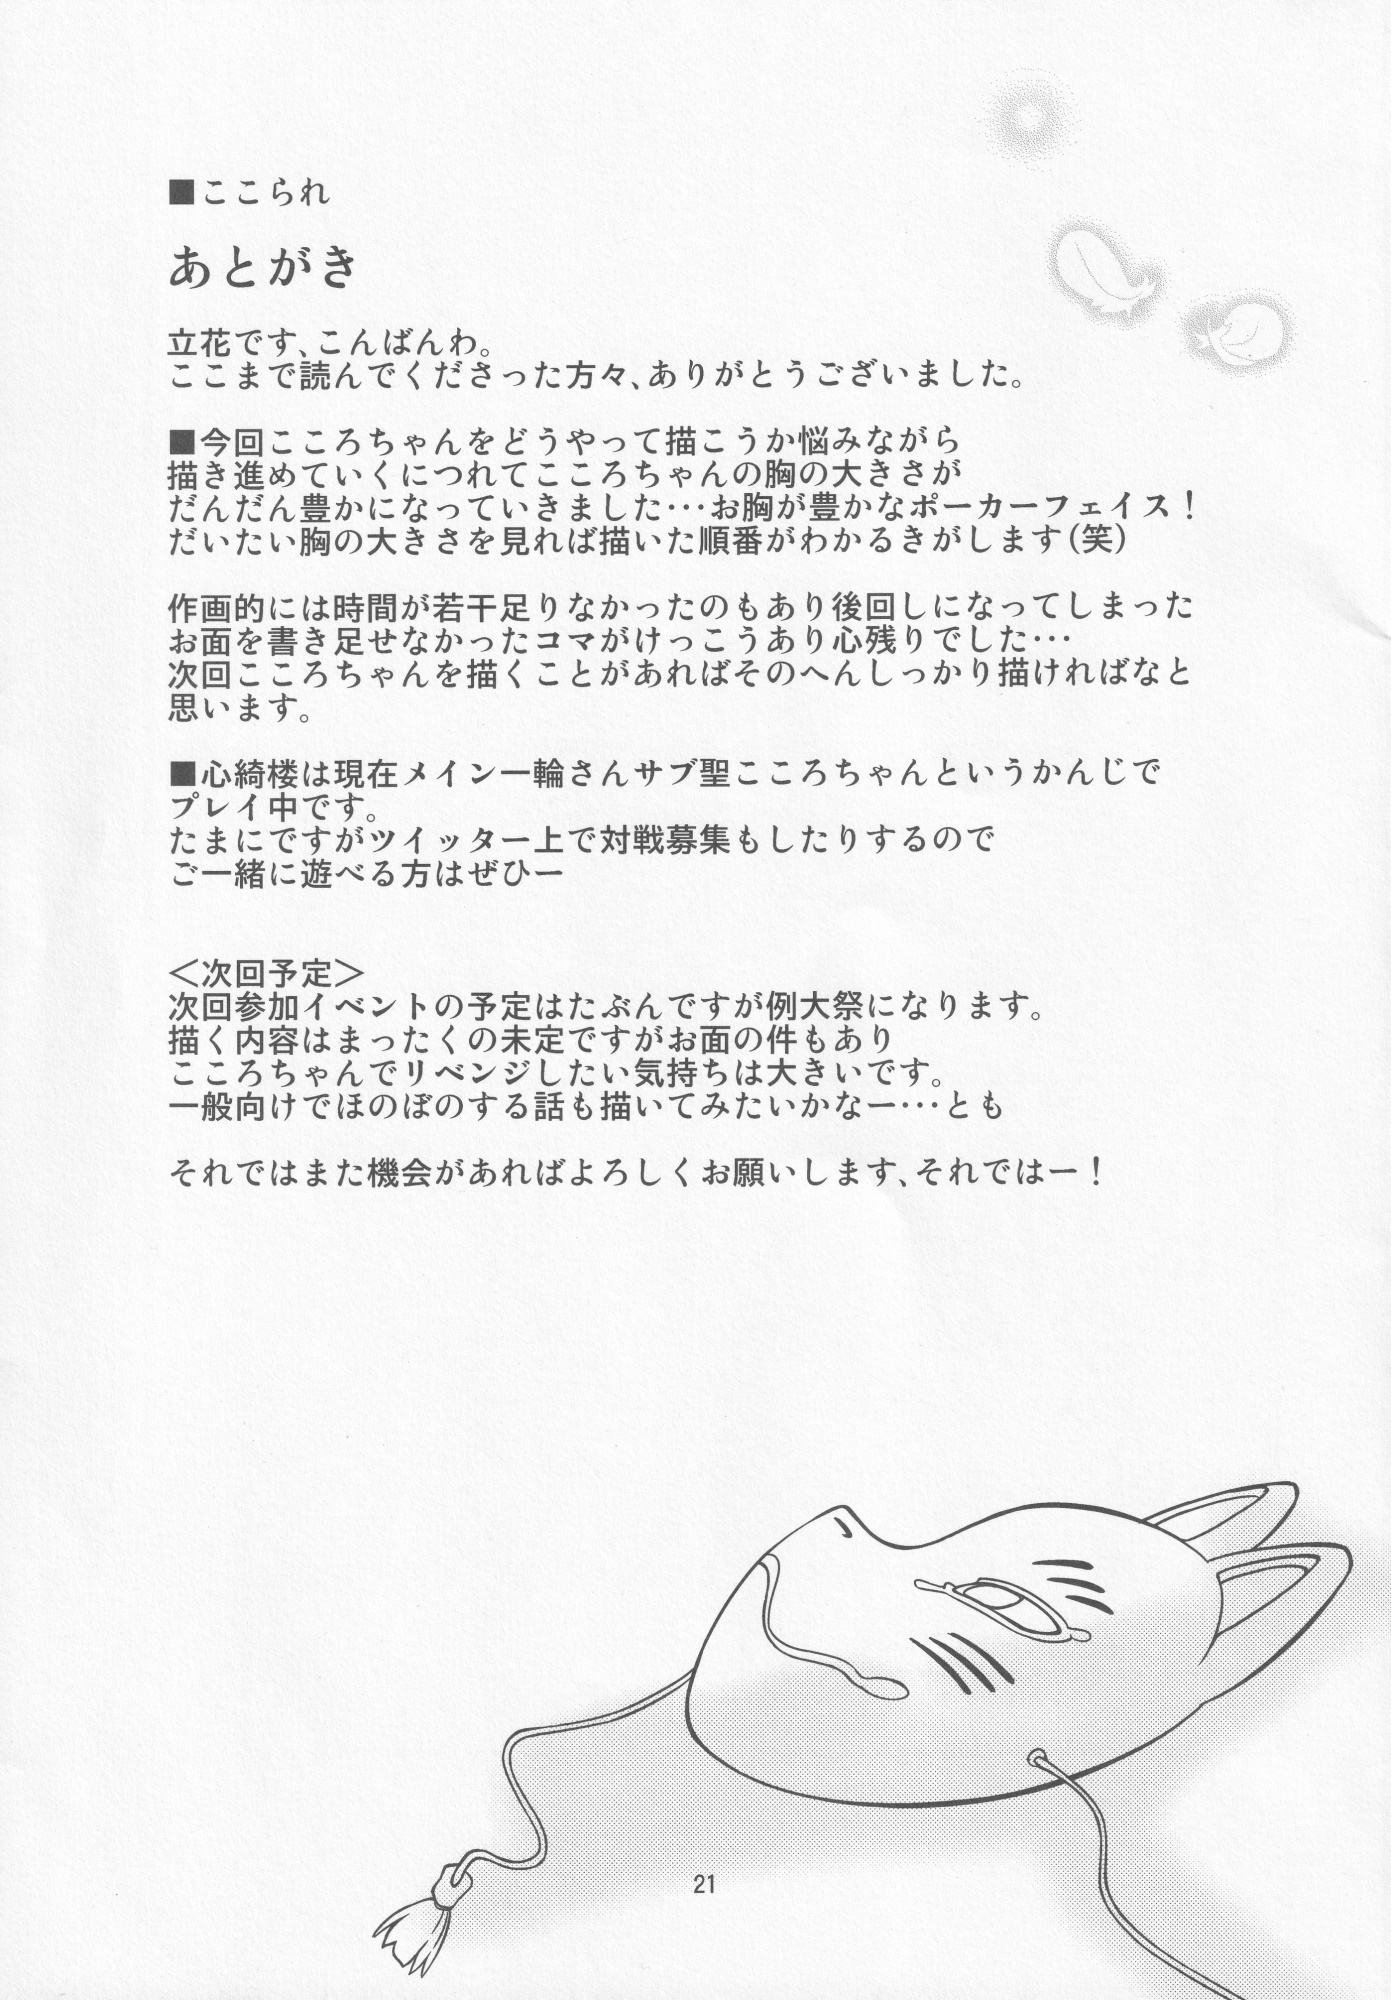 ■ここられ
あとがき
立花です、こんばんわ。
ここまで読んでくださった方々、ありがとうございました。
■今回こころちゃんをどうやって描こうか悩みながら
描き進めていくにつれてこころちゃんの胸の大きさが
だんだん豊かになっていきました…お胸が豊かなポーカーフェイス！
だいたい胸の大きさを見れば描いた順番がわかるきがします（笑）
作画的には時間が若干足りなかったのもあり後回しになってしまった
お面を書き足せなかったコマがけっこうあり心残りでした…
次回こころちゃんを描くことがあればそのへんしっかり描ければなと
思います。
■心綺楼は現在メイン一輪さんサブ聖こころちゃんというかんじで
プレイ中です。
たまにですがツイッター上で対戦募集もしたりするので
ご一緒に遊べる方はぜひー
＜次回予定＞
次回参加イベントの予定はたぶんですが例大祭になります。
描く内容はまったくの未定ですがお面の件もあり
こころちゃんでリベンジしたい気持ちは大きいです。
一般向けでほのぼのする話も描いてみたいかなー…とも
それではまた機会があればよろしくお願いします、それではー！
21